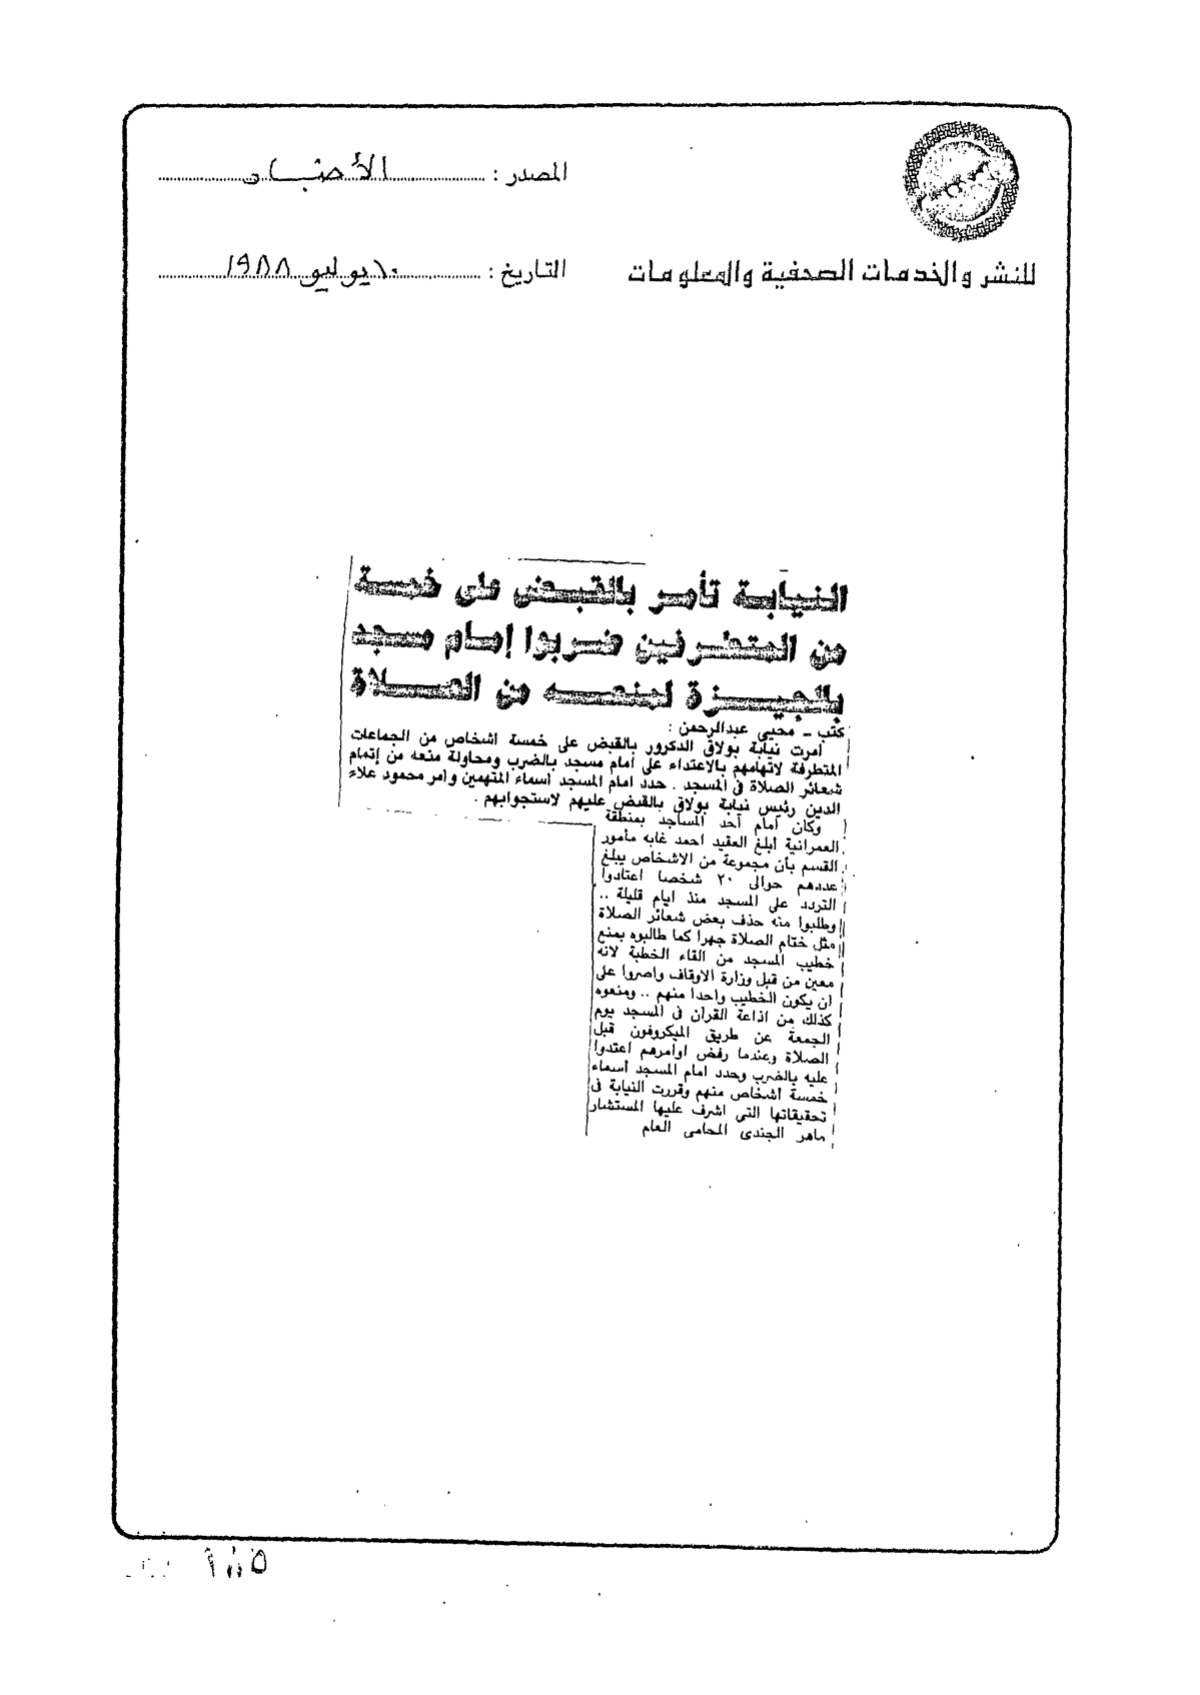 المصدر : الأخبار
للنشر والخدمات الصحفية والمعلومات
التاريخ : ١٠ يوليو ١٩٨٨
النيابة تأمر بالقبض على خمسة
من المتطرفين ضربوا إمام مسجد
بالجيزة لمنعه من الصلاة
كتب ــ محيى عبدالرحمن :
أمرت نيابة بولاق الدكرور بالقبض على خمسة اشخاص من الجماعات
المتطرفة لاتهامهم بالاعتداء على امام مسجد بالضرب ومحاولة منعه من إتمام
شعائر الصلاة فى المسجد . حدد امام المسجد اسماء المتهمين وامر محمود علاء
الدين رئيس نيابة بولاق بالقبض عليهم لاستجوابهم .
وكان امام أحد المساجد بمنطقة
العمرانية أبلغ العقيد احمد غابه مأمور
القسم بأن مجموعة من الاشخاص يبلغ
عددهم حوالى ٢٠ شخصا اعتادوا
التردد على المسجد منذ ايام قليلة ..
وطلبوا منه حذف بعض شعائر الصلاة
مثل ختام الصلاة جهرا كما طالبوه بمنع
خطيب المسجد من القاء الخطبة لانه
معين من قبل وزارة الاوقاف واصروا على
ان يكون الخطيب واحدا منهم .. ومنعوه
كذلك من اذاعة القرآن فى المسجد يوم
الجمعة عن طريق الميكروفون قبل
الصلاة وعندما رفض اوامرهم اعتدوا
عليه بالضرب وحدد امام المسجد أسماء
خمسة أشخاص منهم وقررت النيابة فى
تحقيقاتها التى اشرف عليها المستشار
ماهر الجندى المحامى العام